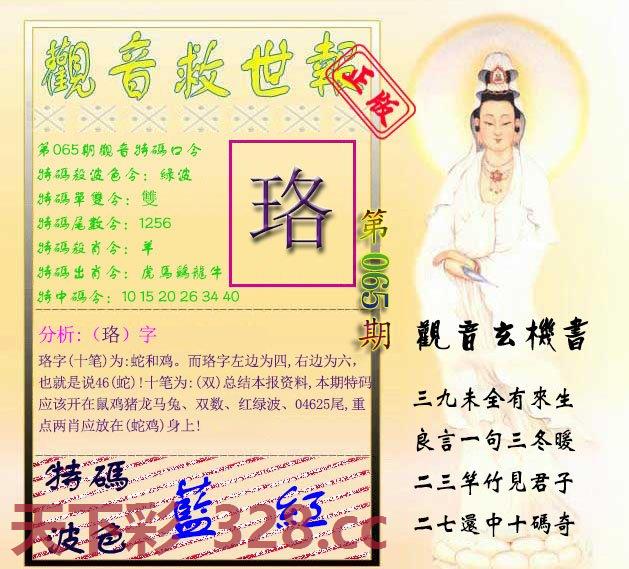 觀音救世報
正版
第065期觀音特碼口令
特碼殺波色令：綠波
特碼單雙令：雙
特碼尾數令：1256
特碼殺肖令：羊
特碼出肖令：虎馬鷄龍牛
特中碼令：10 15 20 26 34 40
珞
第065期
分析:（珞）字
珞字(十笔)为:蛇和鸡。而珞字左边为四,右边为六，
也就是说46(蛇)!十笔为:(双)总结本报资料,本期特码
应该开在鼠鸡猪龙马兔、双数、红绿波、04625尾,重
点两肖应放在(蛇鸡)身上!
特碼
波色
藍 紅
觀音玄機書
三九未全有來生
良言一句三冬暖
二三竿竹見君子
二七還中十碼奇
天下彩 328.cc